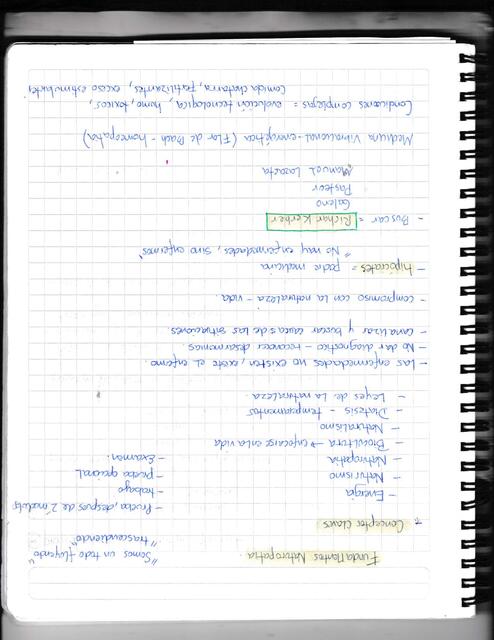 Fundamentos Naturopatia
"Somos un todo fluyendo
"trascendiendo"
Conceptos claves
- Prueba, despues de 2 modulos
- trabajo
- prueba general
- Examen.
- Energia
- Naturismo
- Naturopatia
- Biocultura → enfocarse en la vida
- Naturalismo
- Diatesis - temperamentos
- Leyes de la naturaleza.
- Las enfermedades no existen, existe el enfermo.
- No dar diagnostico - reconocer desarmonias.
- Canalizar y buscar causas de las situaciones
- compromiso con la naturaleza - vida
- hipócrates = padre medicina
"No hay enfermedades, sino enfermos"
- Buscar = Richar Kerber
Galeno
Pasteur
Manuel Lazaeta
Medicina Vibracional-energética (Flor de Bach - homeopatia)
Condiciones complejas = evolución tecnologica, humo, toxicos,
Comida chatarra, fertilizantes, exceso estimulantes